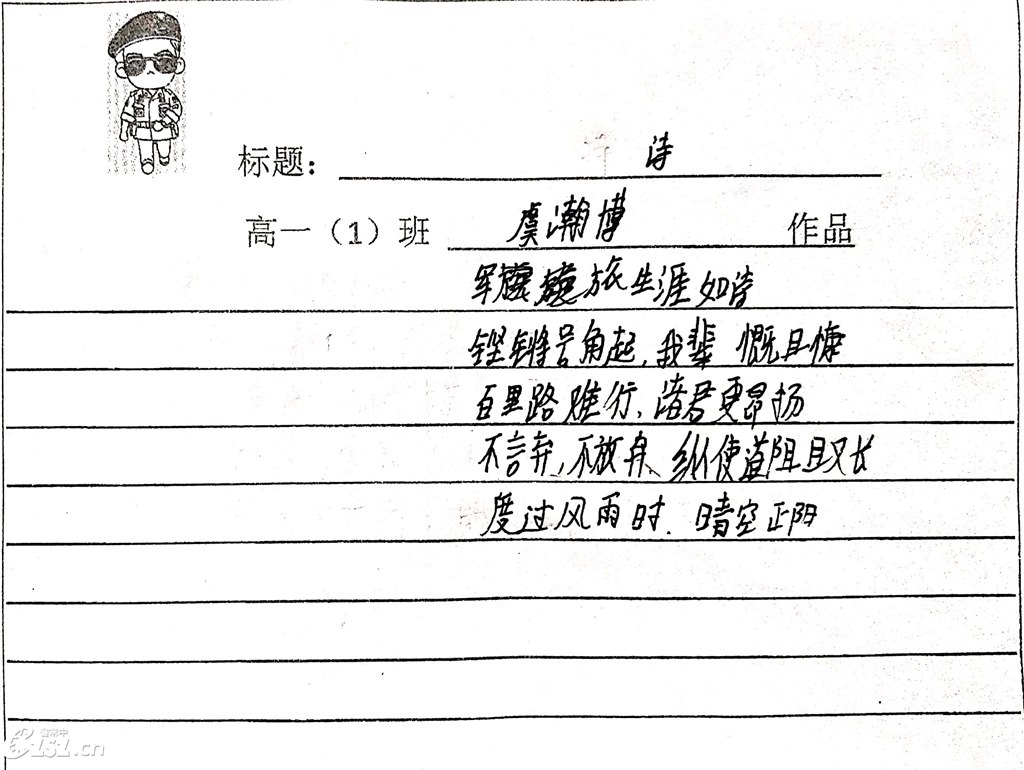 标题： 诗
高一（1）班 虞瀚博 作品
军旅生涯如诗
铿锵号角起，我辈 慨且慷
百里路难行、诸君更昂扬
不言弃，不放弃、纵使道阻且又长
度过风雨时．晴空正阳